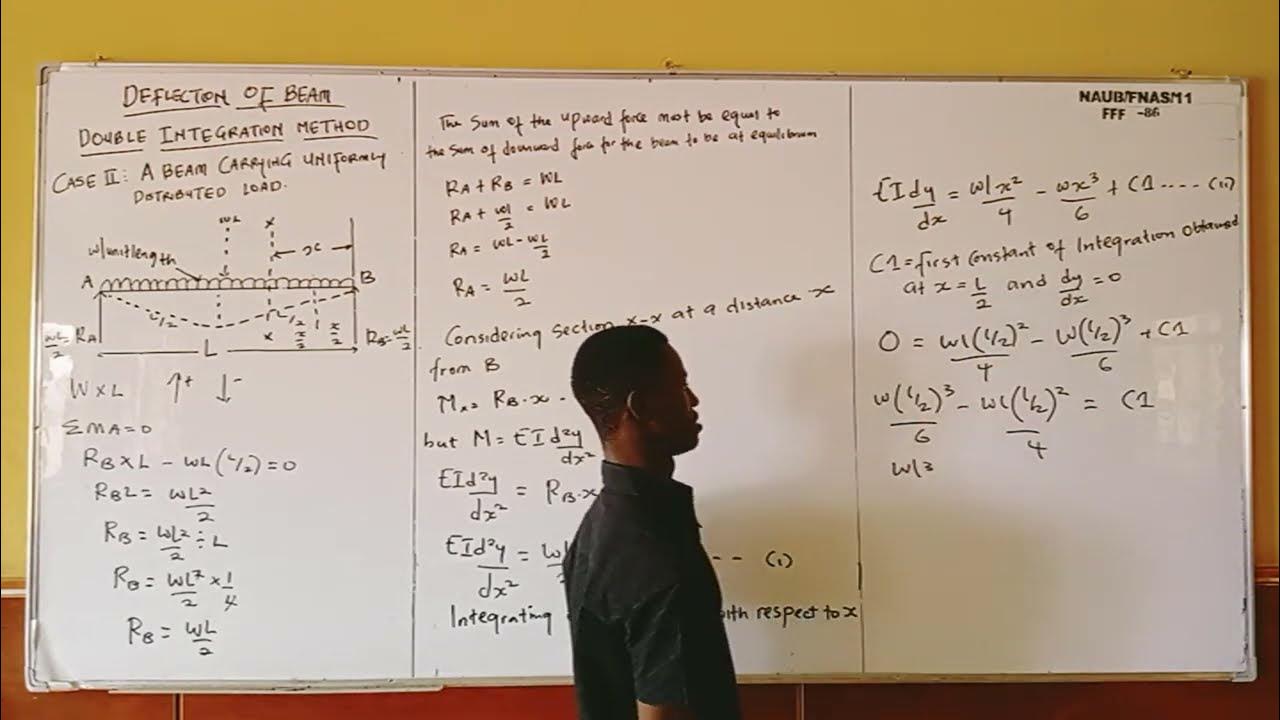 DEFLECTION OF BEAM
DOUBLE INTEGRATION METHOD
CASE II: A BEAM CARRYING UNIFORMLY
DISTRIBUTED LOAD.
WL x
w/unit length x
A B
L/2 L/2
x x/2 x/2
WL/2 = RA L RB = WL/2
W x L ↑+ ↓-
ΣMA = 0
RB x L - WL (L/2) = 0
RBL = WL²/2
RB = WL²/2 ÷ L
RB = WL²/2 x 1/4
RB = WL/2
The Sum of the upward force must be equal to
the sum of downward force for the beam to be at equilibrium
RA + RB = WL
RA + WL/2 = WL
RA = WL - WL/2
RA = WL/2
Considering section x-x at a distance x
from B
RB·x -
but M = EI d²y/dx²
EI d²y/dx² = RB·x
EI d²y/dx² = -- (i)
Integrating with respect to x
NAUB/FNASM1
FFF -86
EI dy/dx = wlx²/4 - wx³/6 + C1 ---- (ii)
C1 = first constant of Integration Obtained
at x = L/2 and dy/dx = 0
0 = wl(L/2)²/4 - W(L/2)³/6 + C1
W(L/2)³/6 - wl(L/2)²/4 = C1
wl3